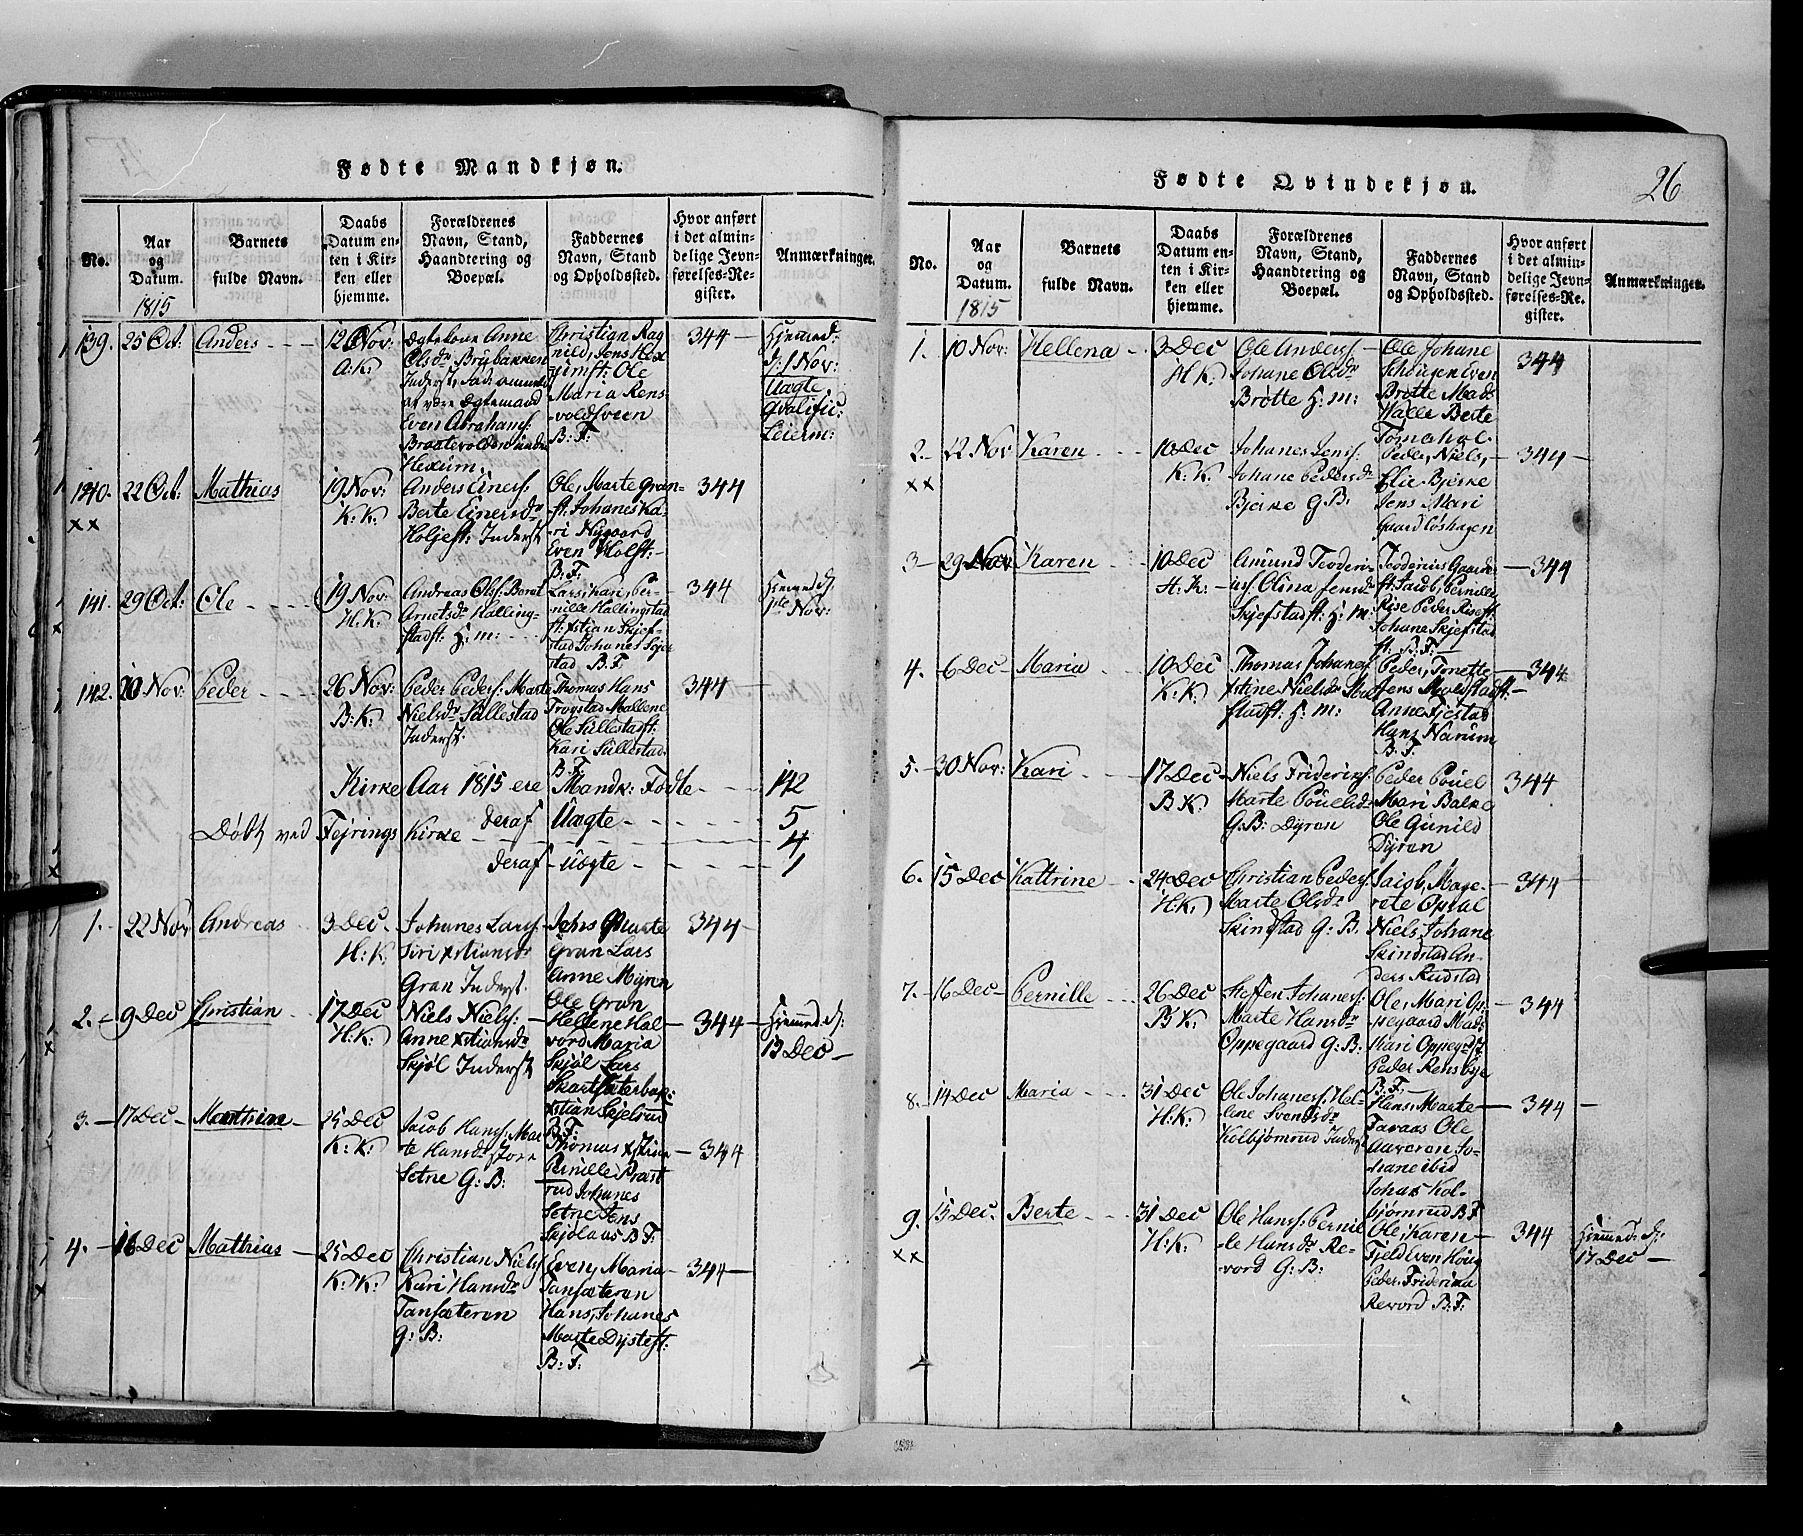 Fødte Mandkjøn.
No.
Aar
og
Datum.
1815
Barnets
fulde Navn.
Daabs
Datum en-
ten i Kir-
ken eller
hjemme.
Forældrenes
Navn, Stand,
Haandtering og
Boepæl.
Faddernes
Navn, Stand
og Opholdssted.
Hvor anført
i det almin-
delige Jevn-
førelses-Re-
gister.
Anmærkninger.
139. 25 Oct: Anders
12 Nov:
A:K:
Anne
Olsdr Brybakken
Inderst,
at være Ægtemand
Even Abrahams:
Hexum.
Christian Rag
nild, Jens Hex
Ole
Maria Rens
voldsveen
B: F:
344
Hjemmed:
d: 1 Nov:
Uægte
qvalific:
Leierm:
140. 22 Oct: Mathias
xx
19 Nov:
K: K:
Anders Einers:
Berte Einersdr
Inderst
Ole, Marte Gran-
Johanes Ka-
ri Nygaard
Even
B: F:
344
141. 29 Oct: Ole
19 Nov:
H: K
Andreas Ols: Beret
Arnetsdr Halling-
stadst: H: m:
Lars, Kari, Per-
nille Hallingstad
xstian Skjef-
stad Johanes
stad B. F
344
Hjemmed d:
1ste Nov:
142. 10 Nov: Peder
26 Nov:
B: K:
Peder Peders: Marte
Nielsdr Sillestad
Inderst:
Thomas Hans
Frogstad Mallene
Ole Sillestadst:
Kari Sillestad
B: F
344
Kirke Aar 1815 ere Mandk: Fødte 142
deraf Uægte 5
Døbt ved Fejrings Kirke 4
deraf uægte 1
1. 22 Nov Andreas
3 Dec
H: K:
Johanes Lars:
Siri xstiansdr
Gran Inderst.
Jens Marte
Gran Lars
Anne Myren
Ole Gran
344
2. 9 Dec Christian
17 Dec
H: K:
Niels Niels:
Anne xstiansdr
Skjøl Inderst
Hellene Hal
vord Maria
Skjøl Lars
xstian
B: F:
344
Hjemmed d:
13 Dec
3. 17 Dec
25 Dec
K: K:
Jacob Hans: Mar
te Hansdr Store
Setne G: B:
Thomas xstian
Pernille Præst
rud Johanes
Setne Jens
B F:
344
4. 16 Dec Mathias
25 Dec
K: K:
Christian Niels:
Kari Hansdr
Tansæteren
G: B:
Even, Maria
Tansæteren
Hans, Johanes
Marte Dystest:
B: F:
344
Fødte Qvindekjøn.
26
No.
Aar
og
Datum.
1815
Barnets
fulde Navn.
Daabs
Datum en-
ten i Kir-
ken eller
hjemme.
Forældrenes
Navn, Stand,
Haandtering og
Boepæl.
Faddernes
Navn, Stand
og Opholdssted.
Hvor anført
i det almin-
delige Jevn-
førelses-Re-
gister.
Anmærkninger.
1. 10 Nov: Hellena
3 Dec
H: K:
Ole Anders:
Johane Olsdr
Brøtte H: m:
Ole Johane
Even
Brøtte Mads
Halle Berte
344
2. 22 Nov Karen
xx
10 Dec
K: K:
Johanes Jens:
Johane Pedersdr
Bjerke G: B:
Peder, Niels,
Elie Bjerke
Jens Mari
344
3 29 Nov Karen
10 Dec
H: K:
Amund Teoderi-
us: Olina Jensdr
Skjefstadst: H: m:
Teoderius
Jacob, Pernille
Rise Peder Risest:
Johane Skjefstad
st: B: F:
344
4. 6 Dec Maria
10 Dec
K: K:
Thomas Johanes:
xstine Nielsdr
stadst: H: m:
Peder, Tonette
Jens
Anne Fjestad
Hans Narum
B: F:
344
5. 30 Nov: Kari
17 Dec
B K:
Niels Friderics:
Marte Pouelsdr
G: B: Dyren
Peder Pouel
Mari Balke
Ole Gunild
Dyren
344
6. 15 Dec Kattrine
24 Dec
H: K:
Christian Peders:
Marte Olsdr
Skindstad G: B.
Jacob, Mage-
rete Opsal
Niels, Johane
Skindstad An-
ders Rudstad
344
7. 16 Dec Pernille
26 Dec
B K:
Steffen Johanes:
Marte Hansdr
Oppegaard G: B:
Ole, Mari Op:
pegaard Mads
Kari Oppegdst:
Peder Rensbye
B: F:
344
8. 14 Dec Maria
31 Dec
H: K:
Ole Johanes: Hel-
lene Svendsdr
Kolbjørnrud Inderst
Hans, Marte
Faraas Ole
Aaveren Jo-
hane ibid
Johas Kol-
bjørnrud B F
344
9. 15 Dec. Berte
xx
31 Dec
H: K:
Ole Hans: Pernil
le Hansdr Re-
vord G: B:
Ole, Karen
Fjeld Even Houg
Peder, Friderica
Revord B: F:
344
Hjemmed: d:
17 Dec